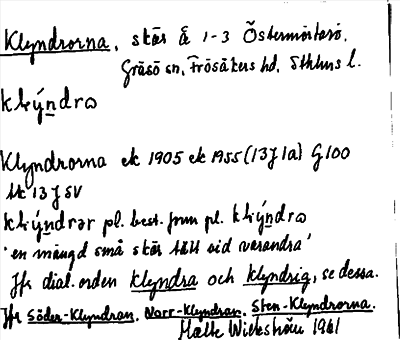 Klyndrorna, skär å 1-3 Östermörtarö.
Gräsö sn, Frösåkers hd, Sthlms l.
klýndra
Klyndrorna ek 1905 ek 1955 (13J 1a) G100
tk 13J SV
klýndrər pl. best. form pl. klýndra
'en mängd små skär tätt vid varandra'
Jfr dial. orden klyndra och klyndrig, se dessa.
Jfr Söder-Klyndran, Norr-Klyndran, Sten-Klyndrorna.
1961